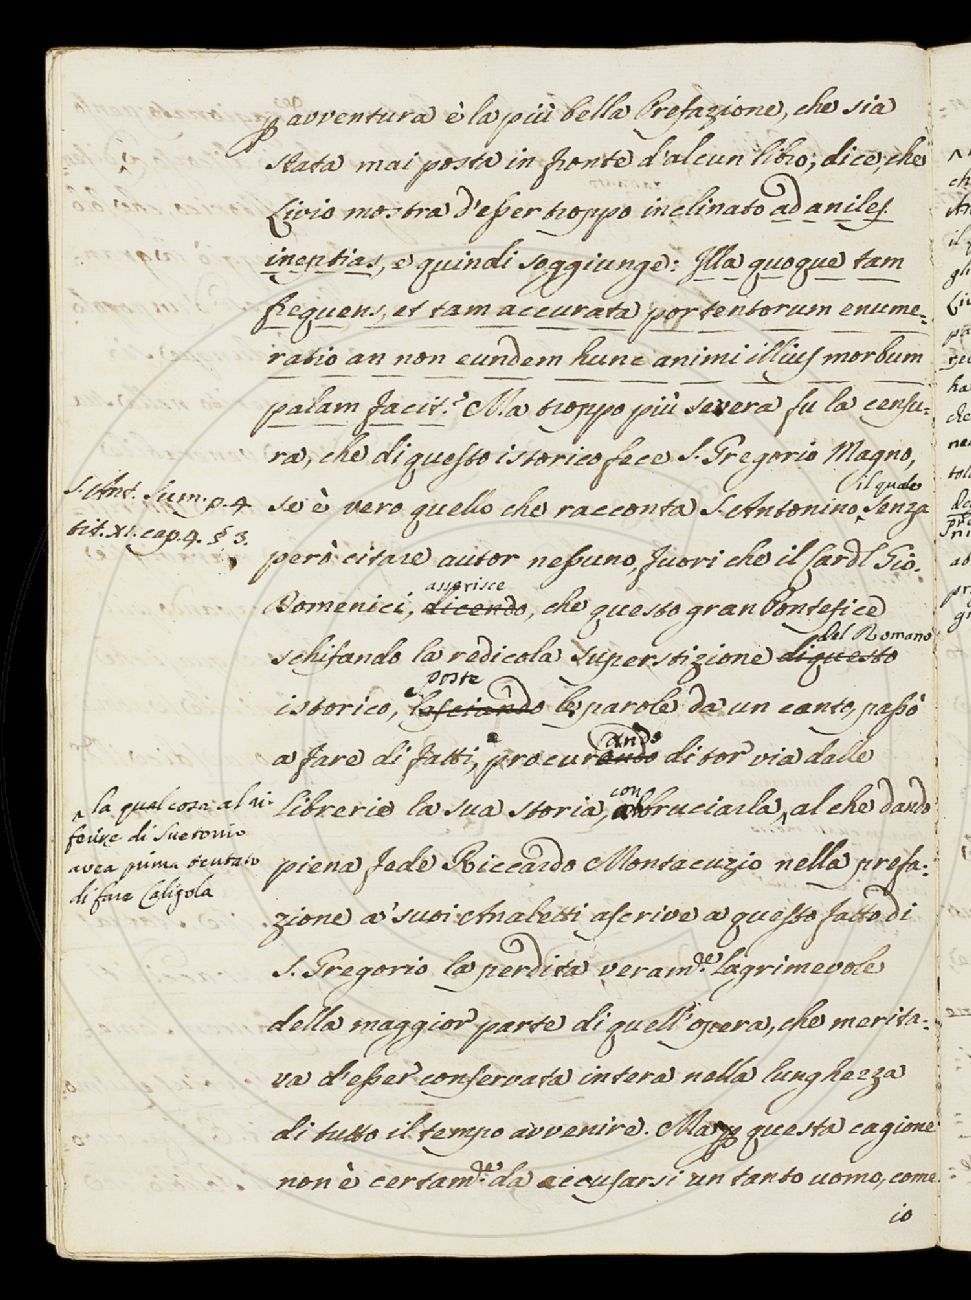 p avventura è la più bella Prefazione, che sia
stata mai posta in fronte d'alcun libro, dice, che
Livio mostra d'esser troppo inclinato ad aniles
ineptias, e quindi soggiunge: Illa quoque tam
frequens, et tam accurata portentorum enume-
ratio an non eundem hunc animi illius morbum
palam facit? Ma troppo più severa fu la censu-
ra, che di questo istorico fece S. Gregorio Magno,
il quale
S. Ant. Sum. p. 4
tit. XI. cap. 4. § 3.
se è vero quello che racconta S. Antonino, senza
però citare autor nessuno, fuori che il Cardl Gio.
asserisce
Domenici, dicendo, che questo gran Pontefice
del Romano
schifando la redicola superstizione di questo
poste
istorico, lasciando le parole da un canto, passò
ando
a fare di fatti, e procurando di tor via dalle
con
librerie la sua storia, abbruciarla, al che dando
la qual cosa al ri-
ferire di Suetonio
avea prima tentato
di fare Caligola
piena fede Riccardo Montacuzio nella prefa-
zione a' suoi Analetti ascrive a questo fatto di
S. Gregorio la perdita veramde lagrimevole
della maggior parte di quell'opera, che merita-
va d'esser conservata intera nella lunghezza
di tutto il tempo avvenire. Ma p questa cagione
non è certamde da accusarsi un tanto uomo, come
io